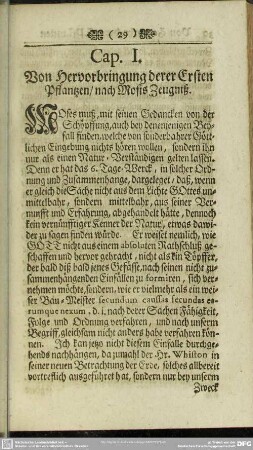 (29)
Cap. I.
Von Hervorbringung derer Ersten
Pflantzen/ nach Mosis Zeugniß.
MOses muß, mit seinen Gedancken von der
Schöpffung, auch bey denenjenigen Bey-
fall finden, welche von sonderbahrer Gött-
lichen Eingebung nichts hören wollen, sondern ihn
nur als einen Natur-Verständigen gelten lassen.
Denn er hat das 6. Tage-Werck, in solcher Ord-
nung und Zusammenhange, dargeleget, daß, wenn
er gleich die Sache nicht aus dem Lichte GOttes un-
mittelbahr, sondern mittelbahr, aus seiner Ver-
nunfft und Erfahrung, abgehandelt hätte, dennoch
kein vernünfftiger Kenner der Natur, etwas dawi-
der zu sagen finden würde. Er weiset nemlich, wie
GOTT nicht aus einem absoluten Rathschluß ge-
schaffen und hervor gebracht, nicht als ein Töpffer,
der bald diß bald jenes Gefässe, nach seinen nicht zu-
sammenhangenden Einfällen zu formiren, sich ver-
nehmen möchte, sondern, wie er vielmehr als ein wei-
ser Bau-Meister secundum caussas secundas ea-
rumque nexum, d. i. nach derer Sachen Fähigkeit,
Folge und Ordnung verfahren, und nach unserm
Begriff, gleichsam nicht anders habe verfahren kön-
nen. Ich kan jetzo nicht diesem Einfalle durchge-
hends nachhängen, da zumahl der Hr. Whiston in
seiner neuen Betrachtung der Erde, solches allbereit
vortreflich ausgeführet hat, sondern nur bey unserm
Zweck